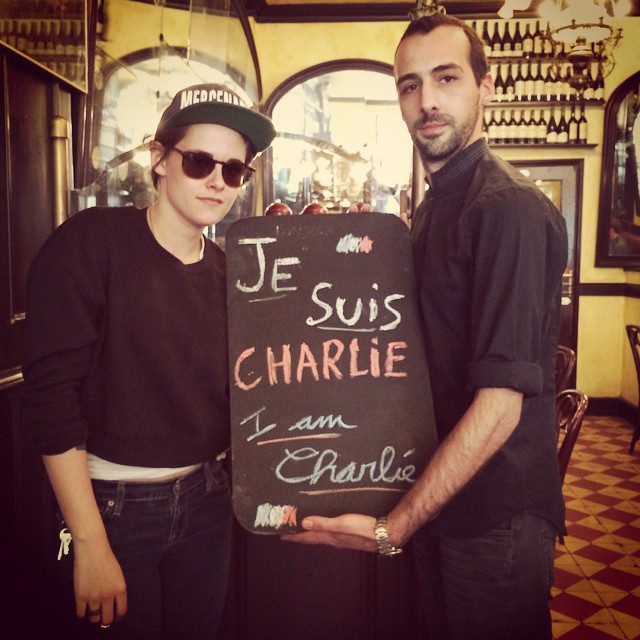 JE
SUIS
CHARLIE
I am
Charlie